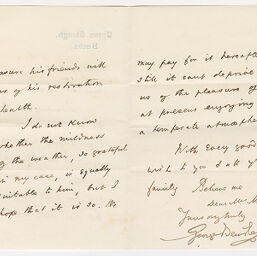 Upton, Slough,
Bucks.
assure his friends with
of his restoration
health.
I do not know
whether the mildness
of the weather, so grateful
in my case, is equally
suitable to him, but I
hope that it is so. We
may pay for it hereafter
still it cant deprive
us of the pleasure of
at present enjoying
a temperate atmosphere
With every good
wish to you & all y
family Believe me
dear
Yours very truly